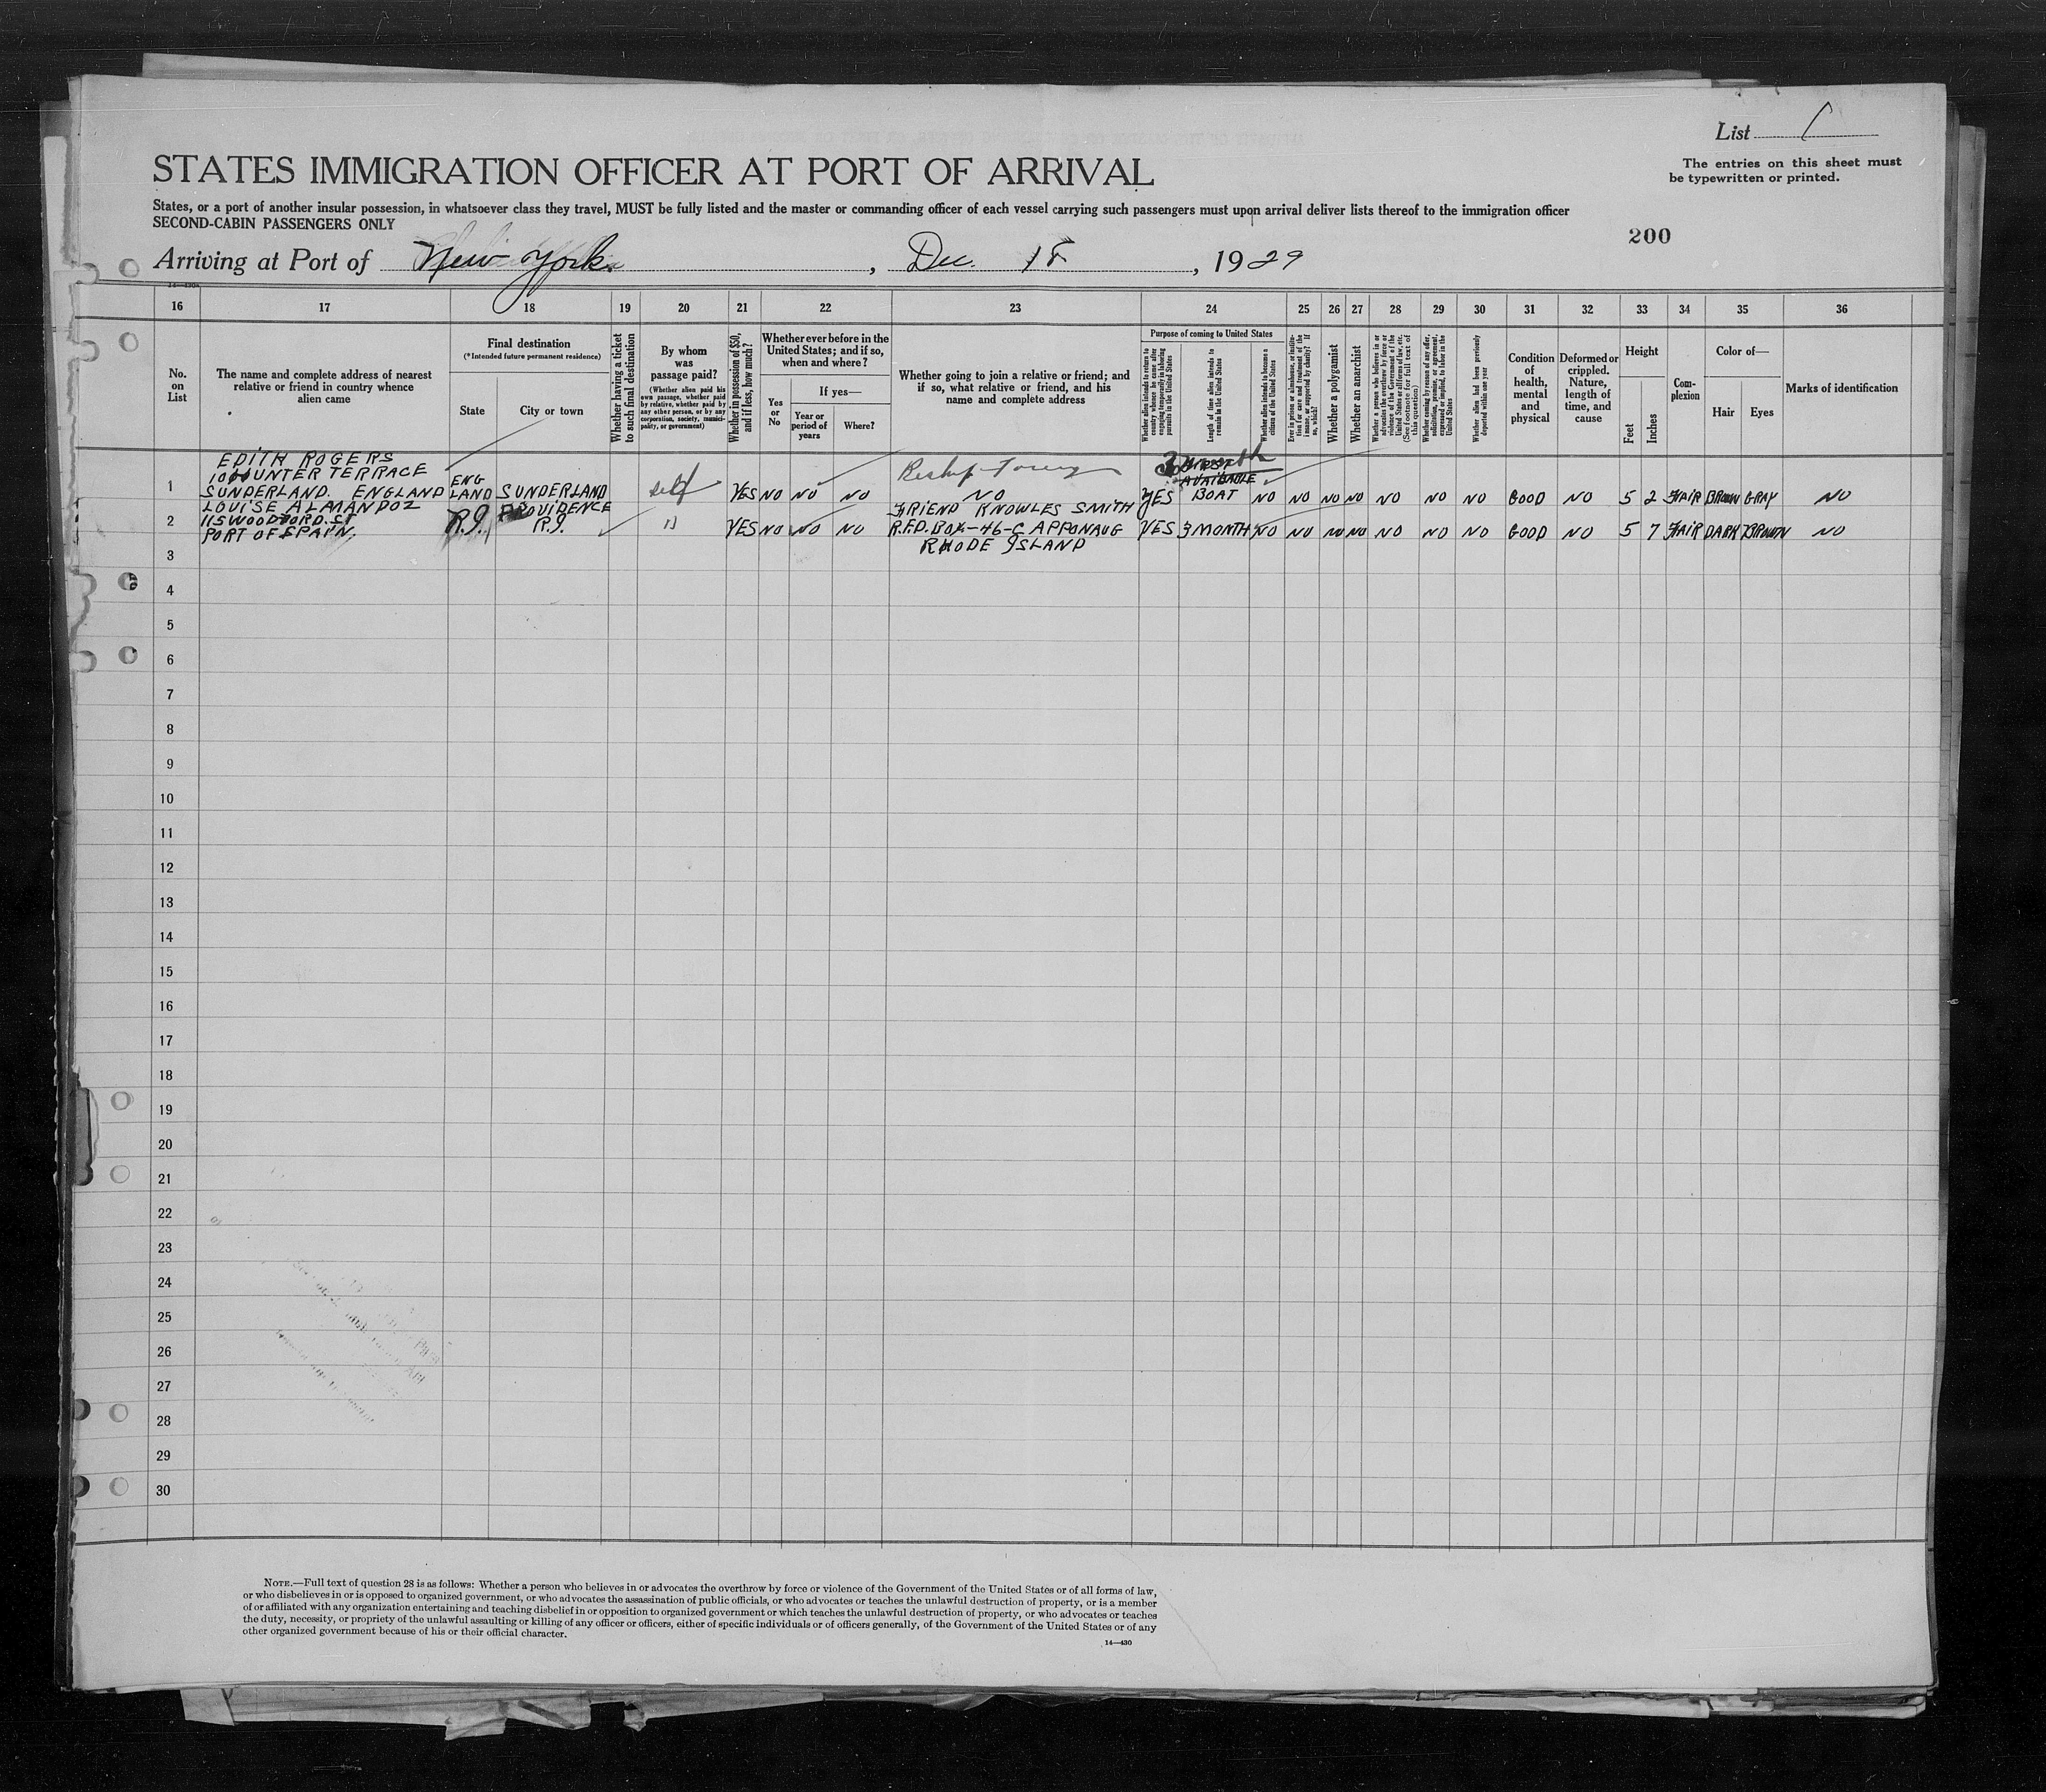 List 1
The entries on this sheet must
be typewritten or printed.
STATES IMMIGRATION OFFICER AT PORT OF ARRIVAL
States, or a port of another insular possession, in whatsoever class they travel, MUST be fully listed and the master or commanding officer of each vessel carrying such passengers must upon arrival deliver lists thereof to the immigration officer
SECOND-CABIN PASSENGERS ONLY
200
Arriving at Port of New York, Dec. 18, 1929
16 17 18 19 20 21 22 23 24 25 26 27 28 29 30 31 32 33 34 35 36
No. on List
The name and complete address of nearest relative or friend in country whence alien came
Final destination
(*Intended future permanent residence)
State
City or town
Whether having a ticket to such final destination
By whom was passage paid?
(Whether alien paid his own passage, whether paid by relative, whether paid by any other person, or by any corporation, society, municipality, or government)
Whether in possession of $50, and if less, how much?
Whether ever before in the United States; and if so, when and where?
Yes or No
If yes—
Year or period of years
Where?
Whether going to join a relative or friend; and if so, what relative or friend, and his name and complete address
Purpose of coming to United States
Whether alien intends to return to country whence he came after engaging temporarily in laboring pursuits in the United States
Length of time alien intends to remain in the United States
Whether alien intends to become a citizen of the United States
Ever in prison or almshouse, or institution for care and treatment of the insane, or supported by charity? If so, which?
Whether a polygamist
Whether an anarchist
Whether a person who believes in or advocates the overthrow by force or violence of the Government of the United States or all forms of law, etc. (See footnote for full text of this question)
Whether coming by reason of any offer, solicitation, promise, or agreement, expressed or implied, to labor in the United States
Whether alien had been previously deported within one year
Condition of health, mental and physical
Deformed or crippled. Nature, length of time, and cause
Height
Feet
Inches
Complexion
Color of—
Hair
Eyes
Marks of identification
EDITH ROGERS
HUNTER TERRACE
1 SUNDERLAND. ENGLAND ENG LAND SUNDERLAND self YES NO NO NO NO YES 3 month AVAILABLE BOAT NO NO NO NO NO NO NO GOOD NO 5 2 FAIR BROWN GRAY NO
LOUISE ALMANDOZ
2 115 WOODFORD. ST R.I. PROVIDENCE R.I. " YES NO NO NO FRIEND KNOWLES SMITH R.F.D. BOX-46-C APPONAUG YES 3 MONTH NO NO NO NO NO NO NO GOOD NO 5 7 FAIR DARK BROWN NO
PORT OF SPAIN.
RHODE ISLAND
3
4
5
6
7
8
9
10
11
12
13
14
15
16
17
18
19
20
21
22
23
24
25
26
27
28
29
30
NOTE.—Full text of question 28 is as follows: Whether a person who believes in or advocates the overthrow by force or violence of the Government of the United States or of all forms of law,
or who disbelieves in or is opposed to organized government, or who advocates the assassination of public officials, or who advocates or teaches the unlawful destruction of property, or is a member
of or affiliated with any organization entertaining and teaching disbelief in or opposition to organized government or which teaches the unlawful destruction of property, or who advocates or teaches
the duty, necessity, or propriety of the unlawful assaulting or killing of any officer or officers, either of specific individuals or of officers generally, of the Government of the United States or of any
other organized government because of his or their official character.
14—430